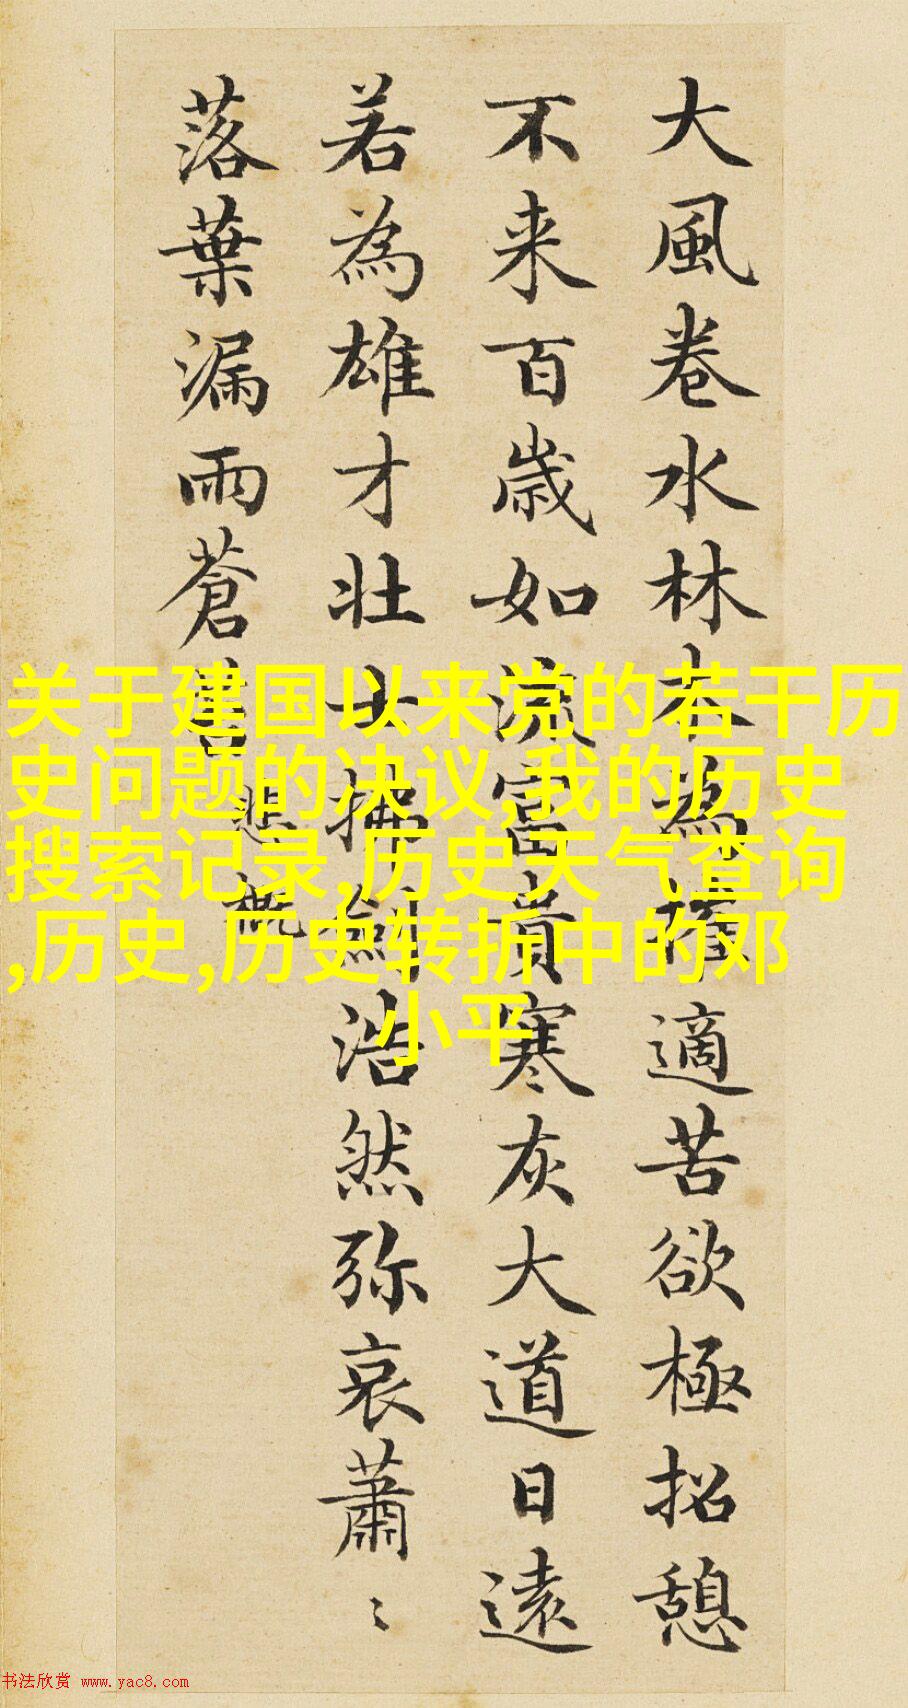 大風卷水林木為摧適苦欲極招憩
不来百歲如流富貴寒灰大道日遠
若為雄才壮士拂劍浩然弥哀蕭ミ
落葉漏雨蒼
悲慨
关于建国以来党的若干历
史问题的决议,我的历史
搜索记录,历史天气查询
,历史,历史转折中的邓
小平
书法欣赏 www.yac8.com